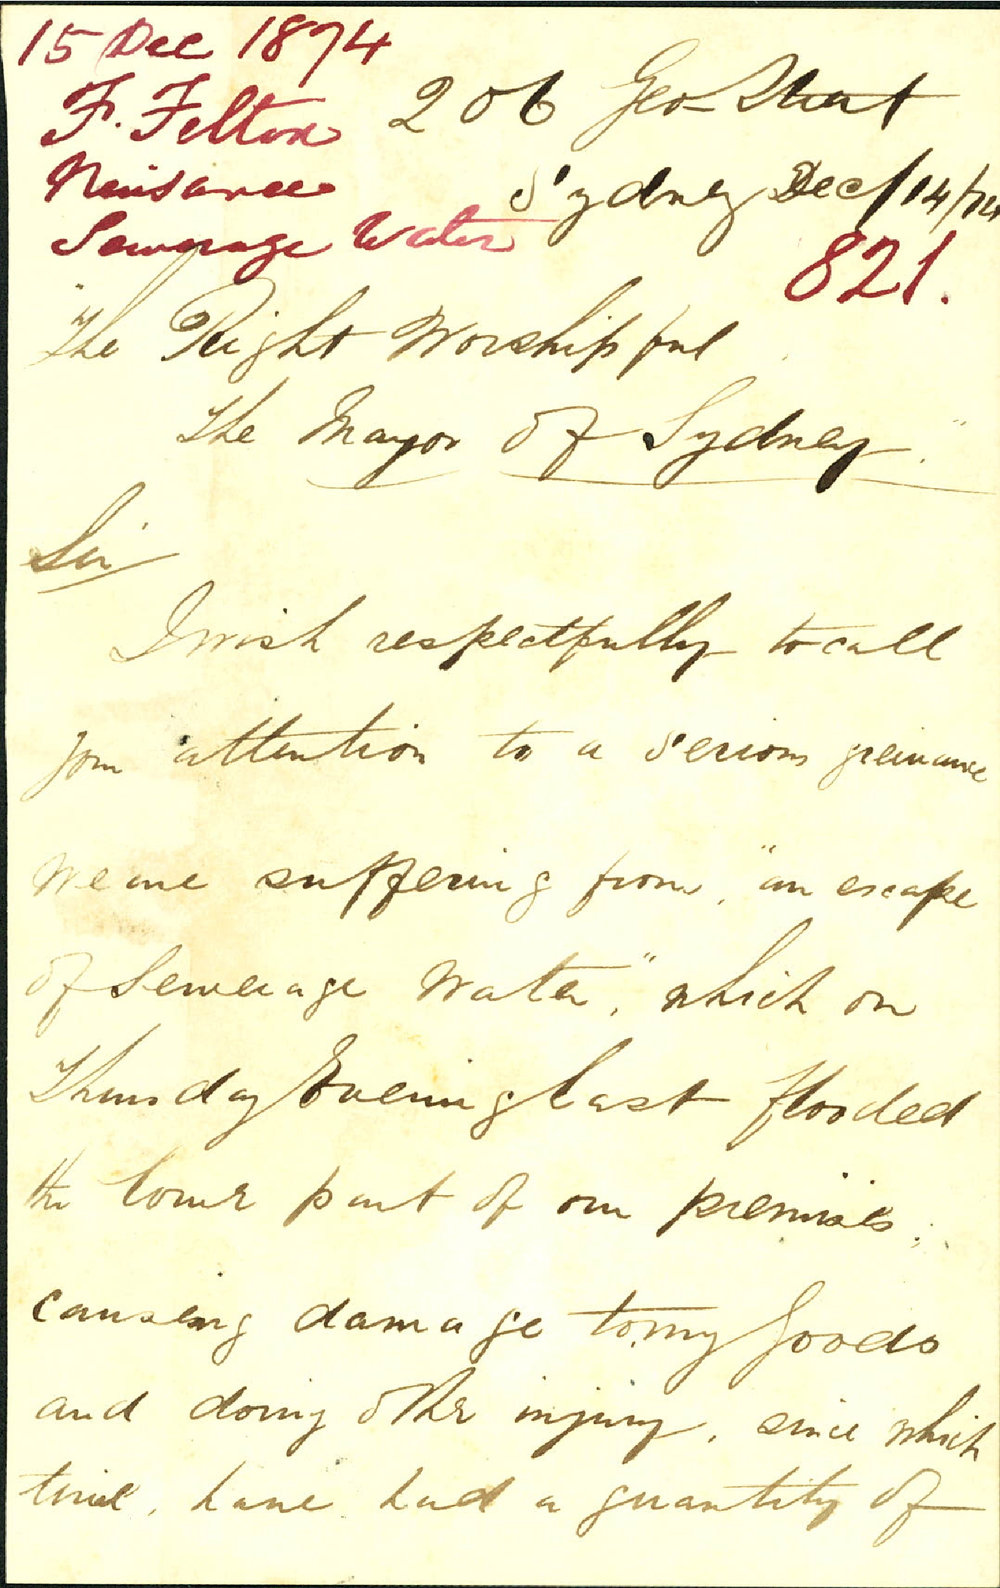 15 Dec 1874
F. Felton
Nuisance
Sewerage Water
206 Geo Street
Sydney Dec/14/74
821.
"The Right Worshipful
The Mayor of Sydney."
Sir
I wish respectfully to call
your attention to a serious greivance
we are suffering from, "an escape
of Sewerage Water," which on
Thursday Evening last flooded
the lower part of our premises,
causeing damage to my Goods
and doing other injury, since which
time, have had a quantity of